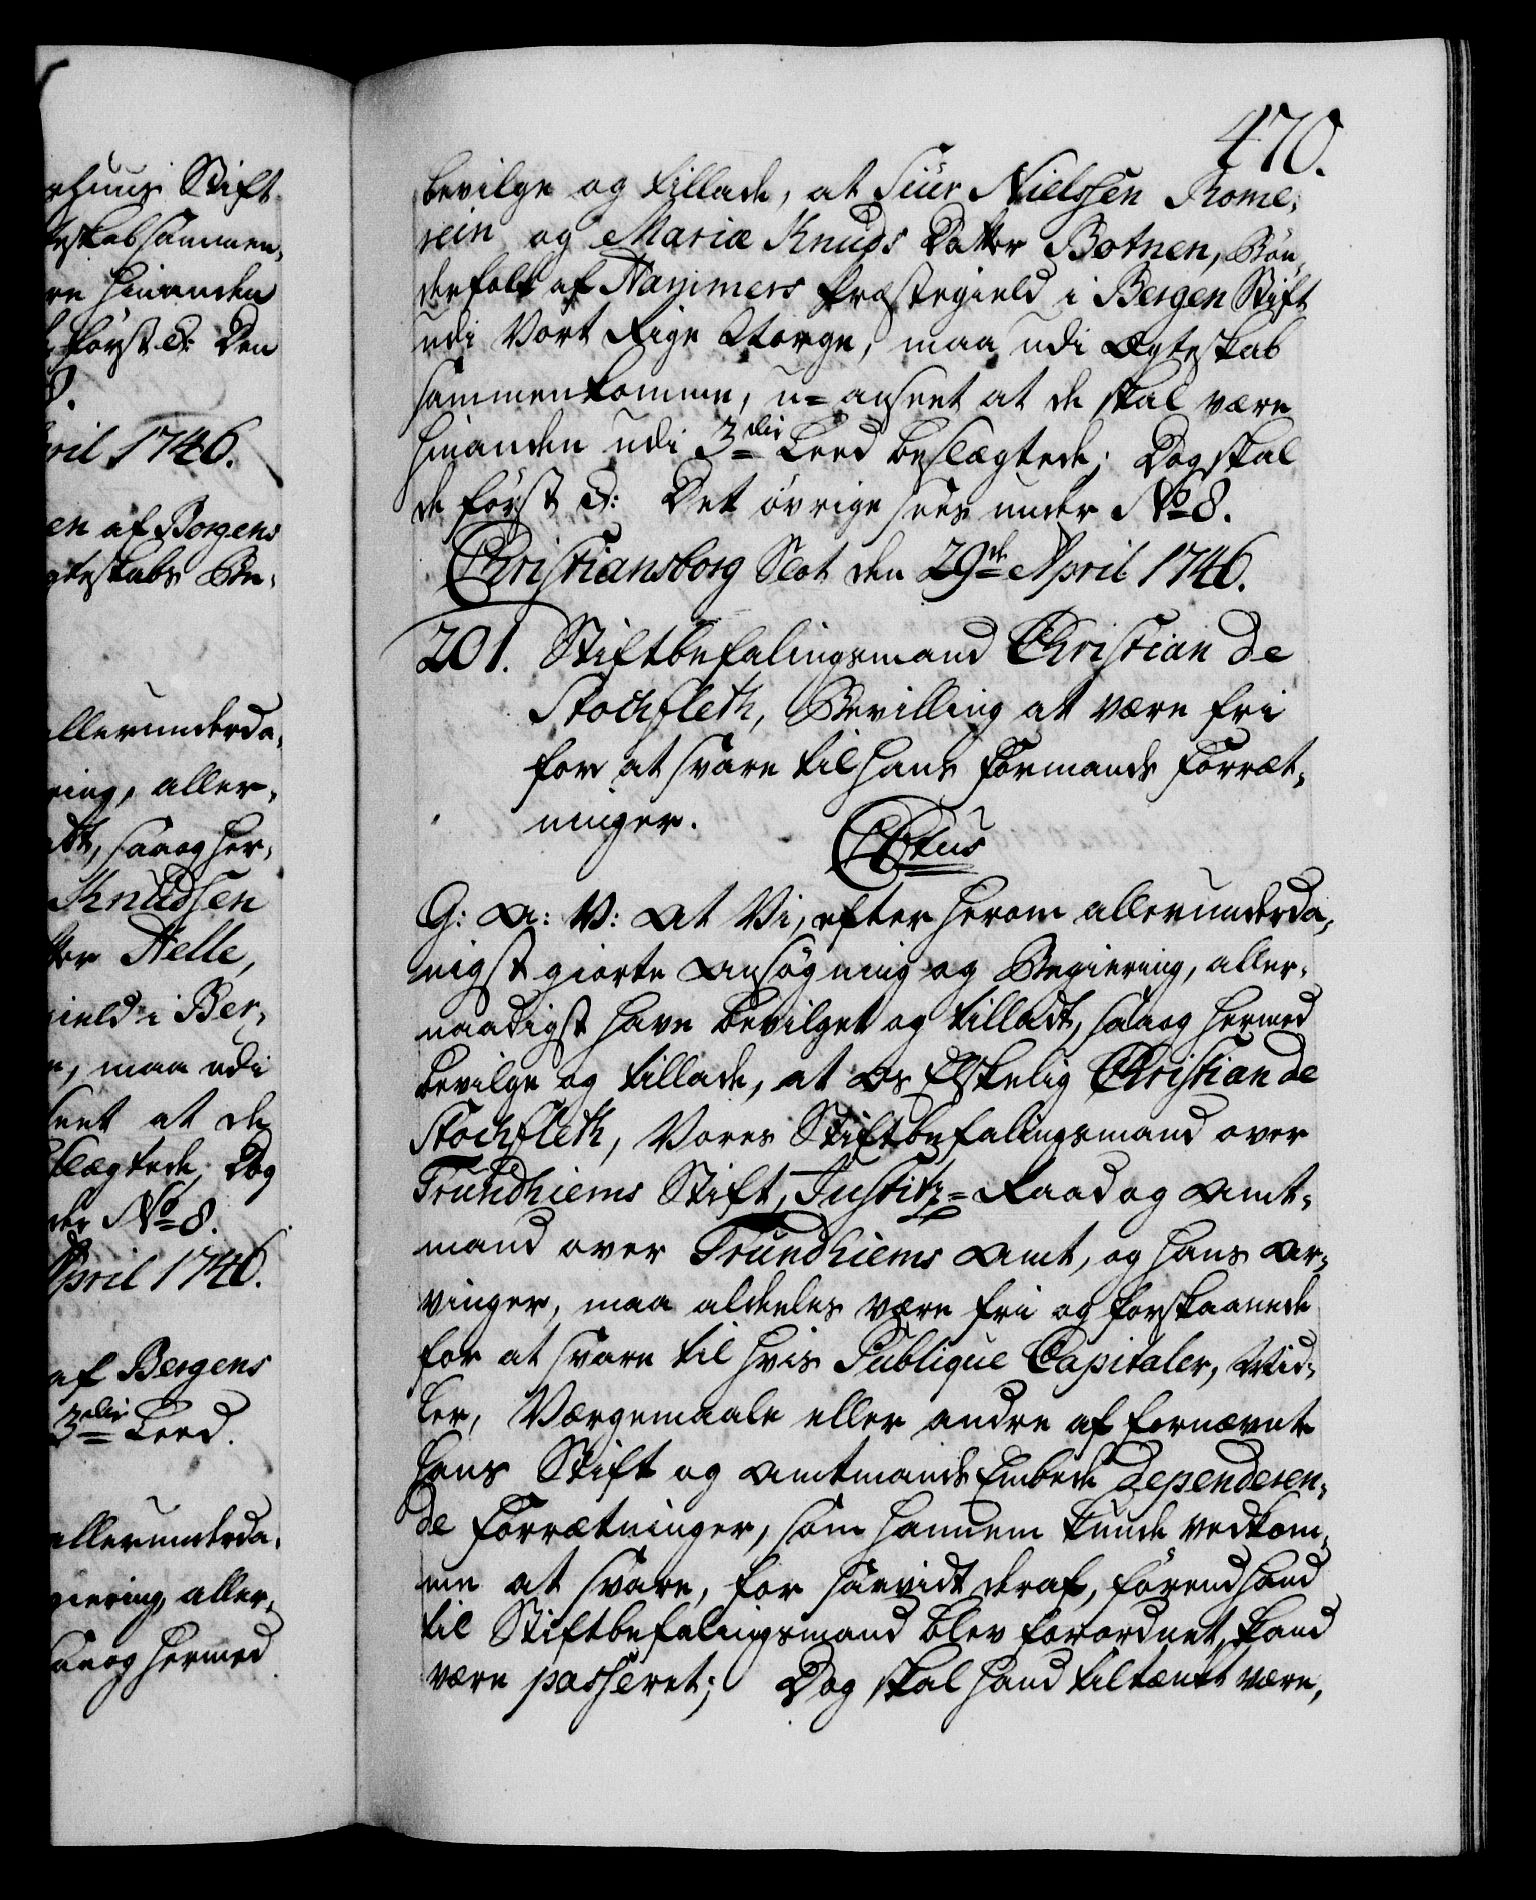 rhuus Stift
teskab sammen,
re hinanden
først &: Den
8.
pril 1746.
en af Bergens
gteskabs Be,
allerunderda,
ring, aller,
adt, saa og her,
Knudsen
tter Helle,
gield i Ber,
e, maa udi
seet at de
slægtede; Dog
der No 8.
April 1746.
af Bergens
3die Leed.
allerunderda,
giering, aller,
saa og hermed
470.
bevilge og tillade, at Siur Nielssen Rome,
rein og Mariæ Knuds Datter Botnen, Bøn,
der folk af Hammers Præstegield i Bergen Stift
udi Vort Rige Norge, maa udi Ægteskab
sammenkomme, u- anseet at de skal være
hinanden udi 3die Leed beslægtede; Dog skal
de først &: Det øvrige sees under No 8.
Christiansborg Slot den 29de April 1746.
201. Stiftbefalingsmand Christian de
Stochfleth, Bevilling at være fri
for at svare til hans Formands Forræt,
ninger.
C6tus
G: A: V: At Vi, efter herom allerunderda,
nigst giorte Ansøgning og Begiering, aller,
naadigst have bevilget og tilladt, saa og hermed
bevilge og tillade, at Os Elskelig Christian de
Stochfleth, Vores Stiftbefalingsmand over
Trundhiems Stift, Justitz- Raad og Amt,
mand over Trundhiems Amt, og hans Ar,
vinger, maa aldeeles være fri og forskaanede
for at svare til hvis Publique Capitaler, Mid,
ler, Værgemaale eller andre af fornævnte
hans Stift og Amtmands Embede dependeren,
de Forrætninger, som hannem kunde vedkom,
me at svare, for saavidt deraf, førend hand
til Stiftbefalingsmand blev forordnet, kand
være passeret; Dog skal hand tiltænkt være,